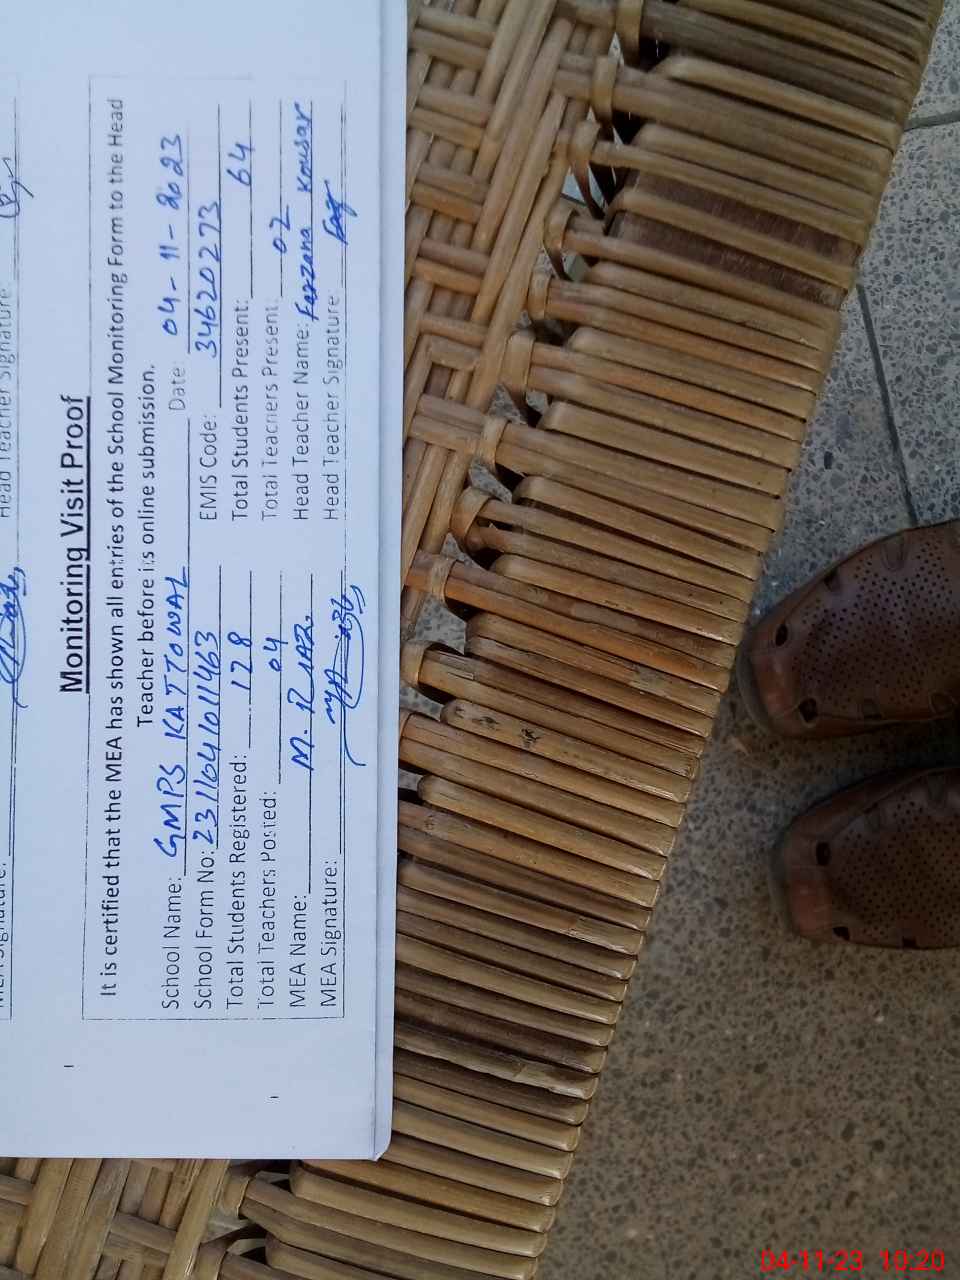 Head Teacher Signature:
Monitoring Visit Proof
It is certified that the MEA has shown all entries of the School Monitoring Form to the Head
Teacher before its online submission.
School Name: GMPS KATTOWAL Date: 04-11-2023
School Form No: 231104101101463 EMIS Code: 34620273
Total Students Registered: 128 Total Students Present: 64
Total Teachers Posted: 04 Total Teachers Present: 02
MEA Name: M. RIAZ. Head Teacher Name: Farzana Kousar
MEA Signature: Head Teacher Signature:
04-11-23 10:20